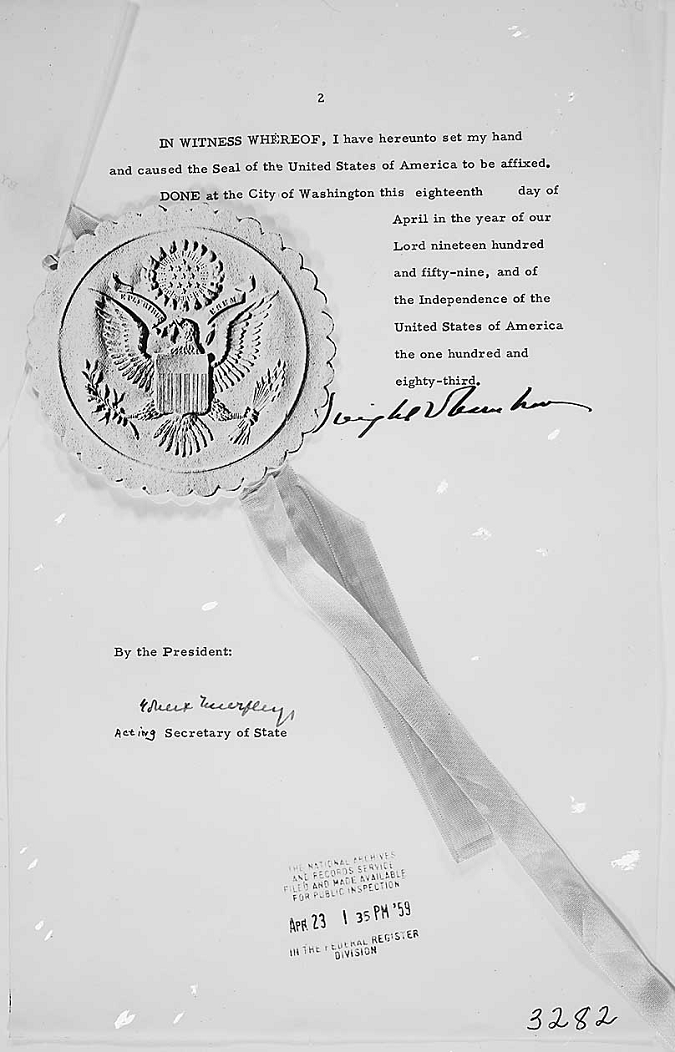 2
IN WITNESS WHEREOF, I have hereunto set my hand
and caused the Seal of the United States of America to be affixed.
DONE at the City of Washington this eighteenth day of
April in the year of our
Lord nineteen hundred
and fifty-nine, and of
the Independence of the
United States of America
the one hundred and
eighty-third.
E PLURIBUS UNUM
Dwight D Eisenhower
By the President:
Robert Murphy
Acting Secretary of State
THE NATIONAL ARCHIVES
AND RECORDS SERVICE
FILED AND MADE AVAILABLE
FOR PUBLIC INSPECTION
APR 23 1 35 PM '59
IN THE FEDERAL REGISTER
DIVISION
3282